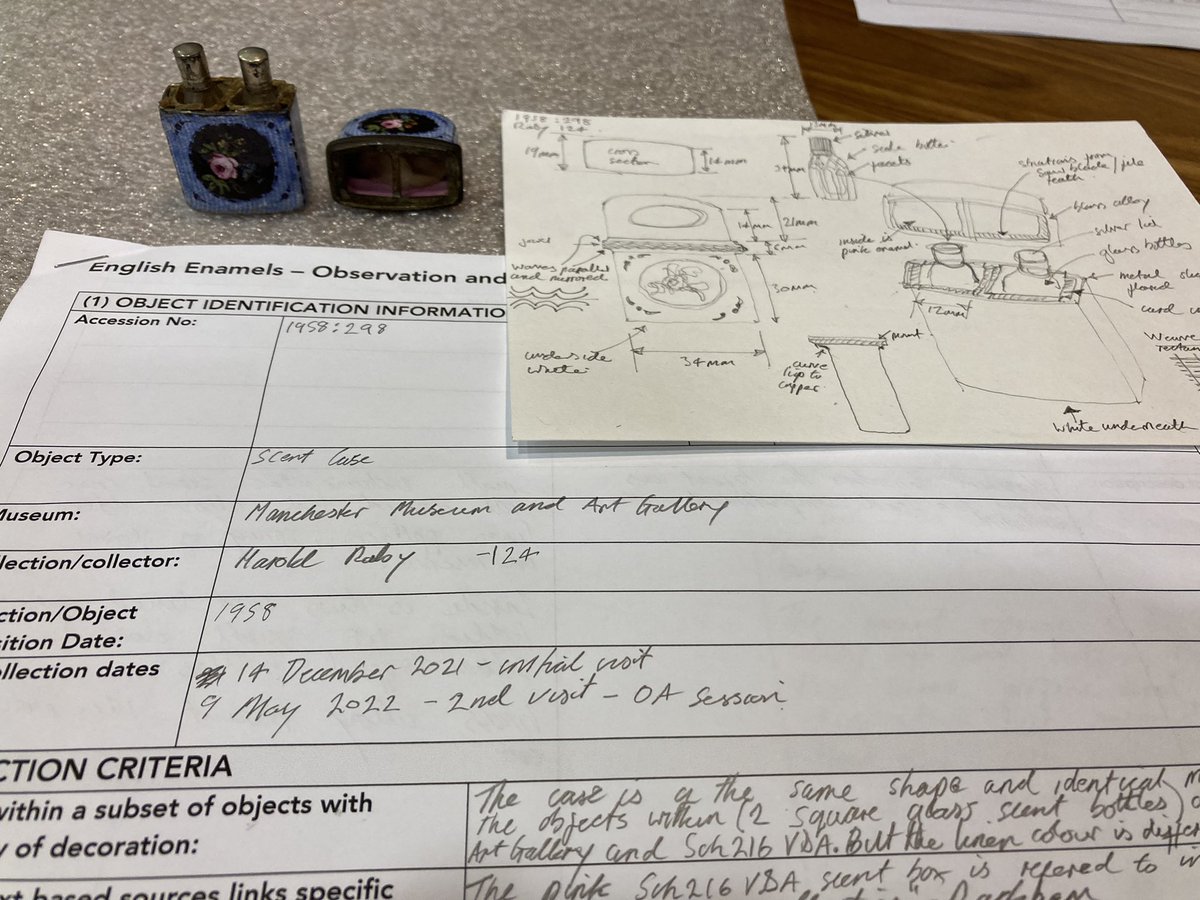 1958:298
Raby 124
19mm
cross
section
14mm
13mm
silver
scale
facets
striations from
saw blade / file
teeth.
brass alloy
silver lid
glass bottles
metal
inside is
pink enamel.
14mm
21mm
5mm
waves parallel
and mirrored
30mm
underside
white
34mm
mount.
curve
lips to
copper.
12mm
white underneath
English Enamels – Observation and
(1) OBJECT IDENTIFICATION INFORMATIO
Accession No:
1958:298
Object Type:
Scent Case
Museum:
Manchester Museum and Art Gallery
llection/collector:
Harold Raby -124
ction/Object
sition Date:
1958
ollection dates
14 December 2021 - initial visit
9 May 2022 - 2nd visit - OA session
CTION CRITERIA
within a subset of objects with
y of decoration:
The case is a the same shape and identical
the objects within (2 square glass scent bottles)
Art Gallery and Sch216 V&A. But the linen colour is differ
xt based sources links specific
The pink Sch216 V&A scent box is refered to in